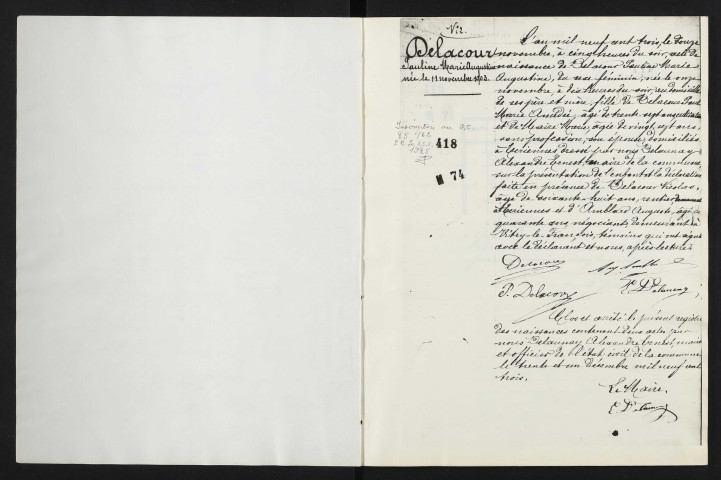 N°2.
Delacour
Pauline Marie Augustine
née le 11 novembre 1903.
418
74
L'an mil neuf cent trois, le douze
novembre, à cinq heures du soir, acte de
naissance de Delacour Pauline Marie
Augustine, du sexe féminin, née le onze
novembre, à dix heures du soir, au domicile
de ses père et mère, fille de Delacour Paul
Marie Amédée, âgé de trente-sept ans,
et de Maire Marie, âgée de vingt-sept ans,
sans profession, son épouse, domiciliés
à dressé par nous Delaunay
Alexandre Ernest, maire de la commune
sur la présentation de l'enfant et la déclaration
faite en présence de Delacour Nicolas,
âgé de soixante-huit ans, rentier
et d'Amblard Auguste, âgé de
quarante ans, négociant, demeurant à
Vitry-le-François, témoins qui ont signé
avec le déclarant et nous, après lecture.
Delacour
P. Delacour
E. Delaunay
Clos et arrêté le présent registre
des naissances contenant deux actes par
nous Delaunay Alexandre Ernest, maire
et officier de l'état civil de la commune
le trente et un décembre mil neuf cent
trois.
Le Maire,
E. Delaunay